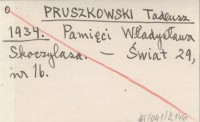 PRUSZKOWSKI Tadeusz
1934. Pamięci Władysława
Skoczylasa. – Świat 29,
nr 16.